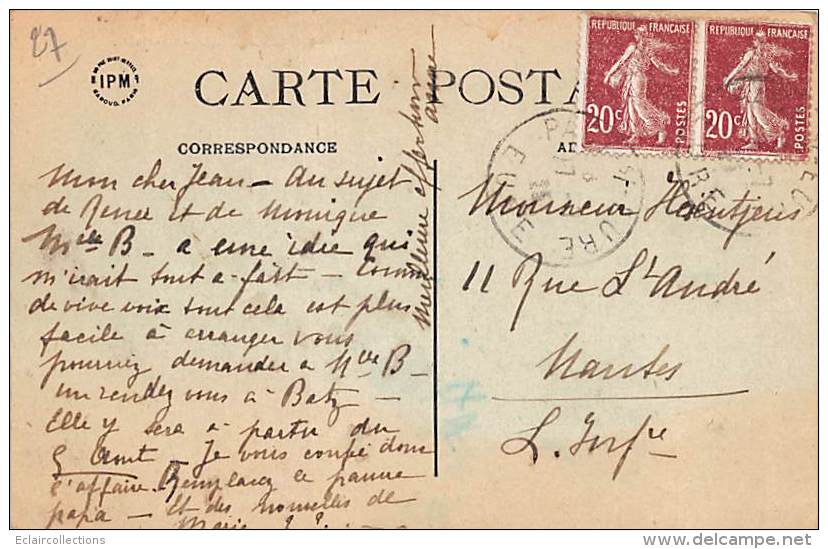 27
IPM
CARTE POSTA
CORRESPONDANCE
AD
RÉPUBLIQUE FRANÇAISE
20c
POSTES
RÉPUBLIQUE FRANÇAISE
20c
POSTES
EURE
Mon cher Jean - Au sujet
de Renée et de Monique
Mlle B - a une idée qui
m'irait tout à fait - Comme
de vive voix tout cela est plus
facile à arranger vous
pourriez demander à Mlle B -
un rendez vous à Batz -
Elle y sera à partir du
5 Août - Je vous confie donc
l'affaire. Remplacez le pauvre
papa - Et des nouvelles de
Marie ? ? . -
Meilleure affection
Monsieur
11 Rue St André
Nantes
L. Infre
Eclaircollections
www.delcampe.net